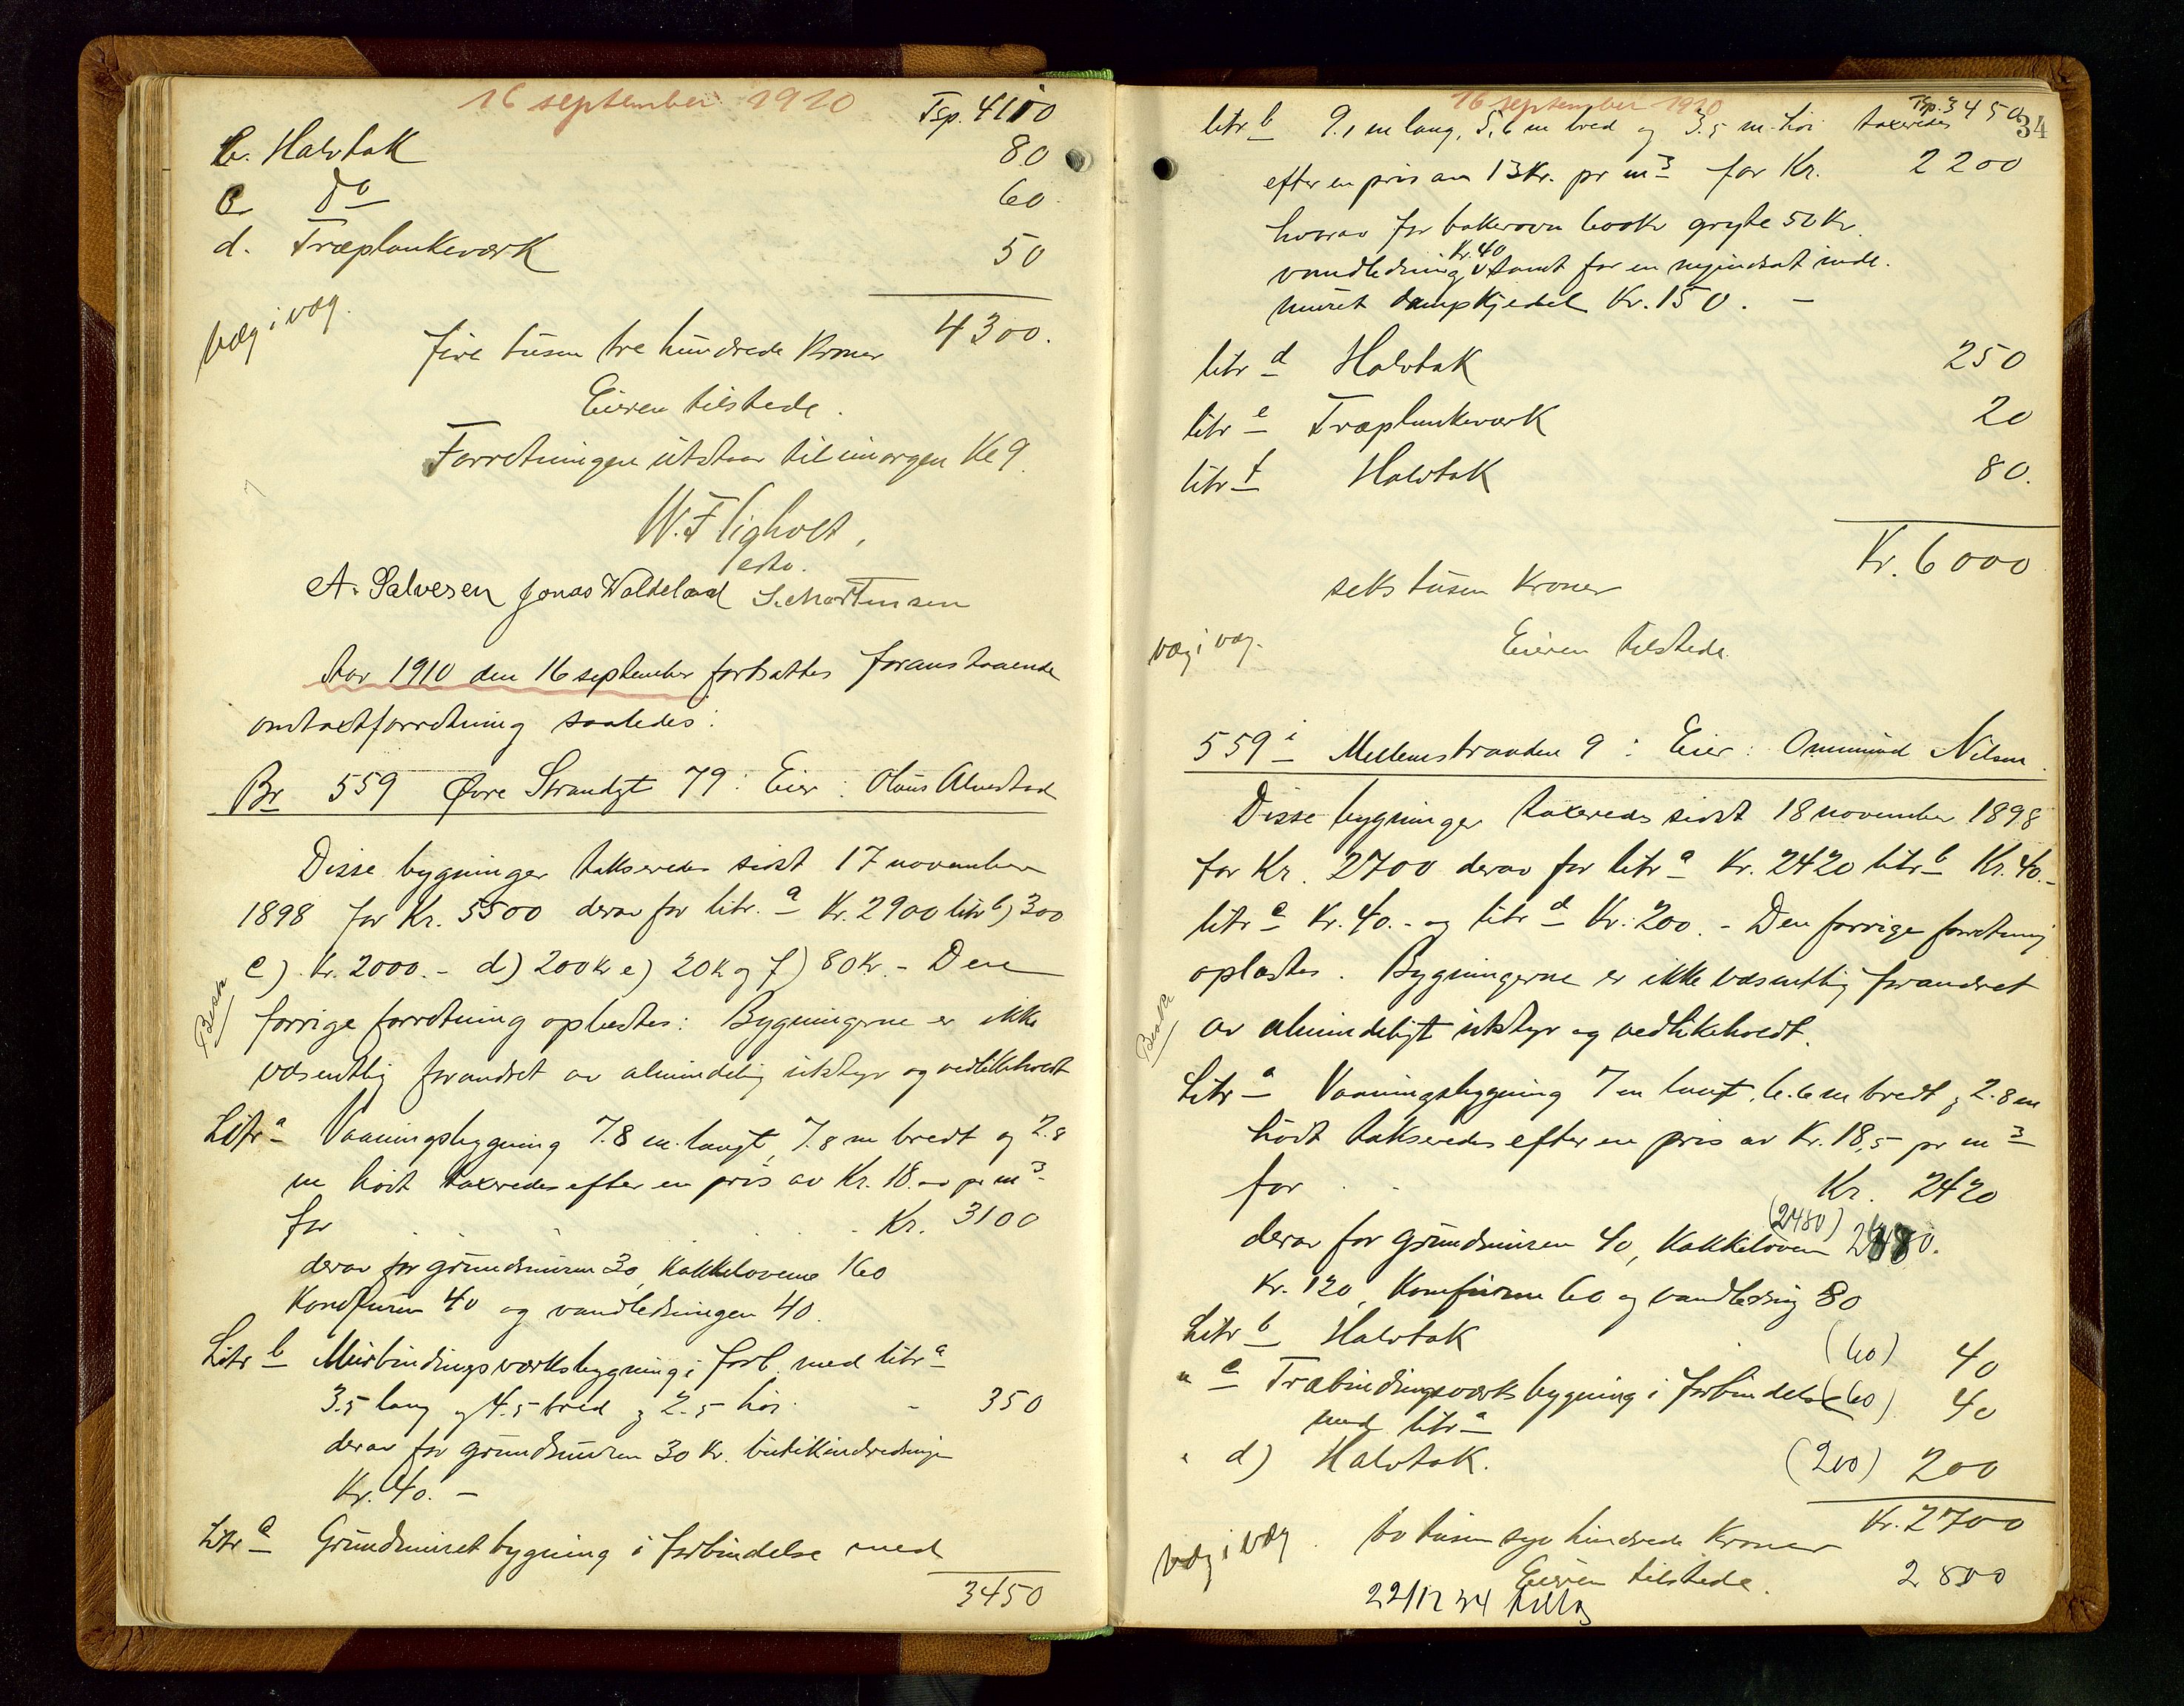 16 september 1910
Tsp. 4110
b. Halvtak 80
c do 60
d. Træplankeværk 50
væg i væg. 4300.
fire tusen tre hundrede Kroner
Eieren tilstede.
Forretningen utstaar til imorgen Kl 9.
W. F
A. Salvesen Jonas Waldeland S. Mortensen
Aar 1910 den 16 september fortsattes foranstaaende
omtaxtforretning saaledes:
Br 559 Øvre Strandgt 79: Eier: Olaus Alvestad
Disse bygninger takseredes sidst 17 november
1898 for Kr. 5500 derav for litr. a Kr. 2900 litr b) 300
c) Kr. 2000.- d) 200 Kr e) 20 K og f) 80 Kr.- Den
forrige forretning oplæstes: Bygningerne er ikke
væsentlig forandret av almindelig utstyr og vedlikeholdt
Litr a Vaaningsbygning 7.8 m. langt, 7.8 m bredt og 2.8
m höit taxeredes efter en pris av Kr. 18.- pr m3
for Kr. 3100
derav for grundmuren 30, Kakkelovene 160
Komfuren 40 og vandledningen 40.
Litr b Murbindingsværksbygning i forb. med litr a
3.5 lang og 4.5 bred og 2.5 höi - 350
derav for grundmuren 30 Kr. butikindredningen
Kr. 40.-
Litr c Grundmuret bygning i forbindelse med
3450
16 september 1910
Tsp. 3450
34
litr b 9.1 m lang, 5.6 m bred og 3.5 m. höi taxeredes
efter en pris av 13 Kr. pr m3 for Kr. 2200
hvorav for bakerovn 600 Kr gryte 50 Kr.
Kr. 40
vandledning samt for en nyindsat inde.
muret dampkjedel Kr. 150. -
litr d Halvtak 250
litr e Træplankeværk 20
litr f Halvtak 80.
Kr. 6000
seks tusen Kroner
væg i væg. Eieren tilstede.
559 i Mellemstraaden 9: Eier: Ommund Nilsen.
Disse bygninger taxeredes sidst 18 november 1898
for Kr. 2700 derav for litr a Kr. 2420 litr b Kr. 40.-
litr c Kr. 40.- og litr d Kr. 200.- Den forrige forretning
oplæstes. Bygningerne er ikke væsentlig forandret
av almindeligt utstyr og vedlikeholdt.
Litr a Vaaningsbygning 7 m langt, 6.6 m bredt og 2.8 m
höit takseredes efter en pris av Kr. 18,5 pr m3
for Kr. 2420
(2480)
derav for grundmuren 40, Kakkelovnen
Kr. 120, Komfurene 60 og vandledning 80
Litr b Halvtak (60) 40
" c Træbindingsværksbygning i forbindelse (60) 40
med litr a
" d) Halvtak. (200) 200
Kr. 2700
væg i væg. to tusen syv hundrede Kroner
Eieren tilstede. 2800
22/12 34